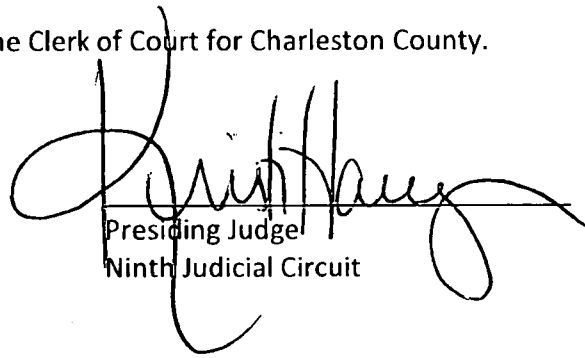 ne Clerk of Court for Charleston County.
Presiding Judge
Ninth Judicial Circuit